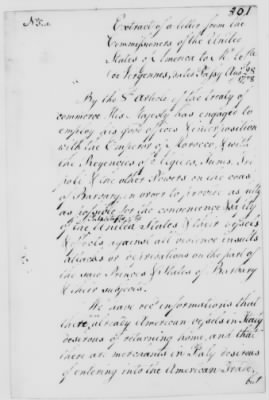 301
No 5.
Extract of a letter from the
Commissioners of the United
States of America to Ct de
Vergennes, dated Passy Aug 28
1778
By the 8th Article of the treaty of
commerce His Majesty has engaged to
employ his good offices & interposition
with the Emperor of Morocco, & with
the Regencies of Algiers, Tunis, Tri
poli & the other Powers on the coast
of Barbary, in order to provide as fully
as possible for the convenience & safety
of the United States & their vessels
& effects against all violence insults
attacks or depredations on the part of
the said Princes & States of Barbary
& their subjects.
We have rec'd informations that
there already American vessels in Italy
desirous of returning home, and that
there are merchants in Italy desirous
of entering into the American Trade,
but